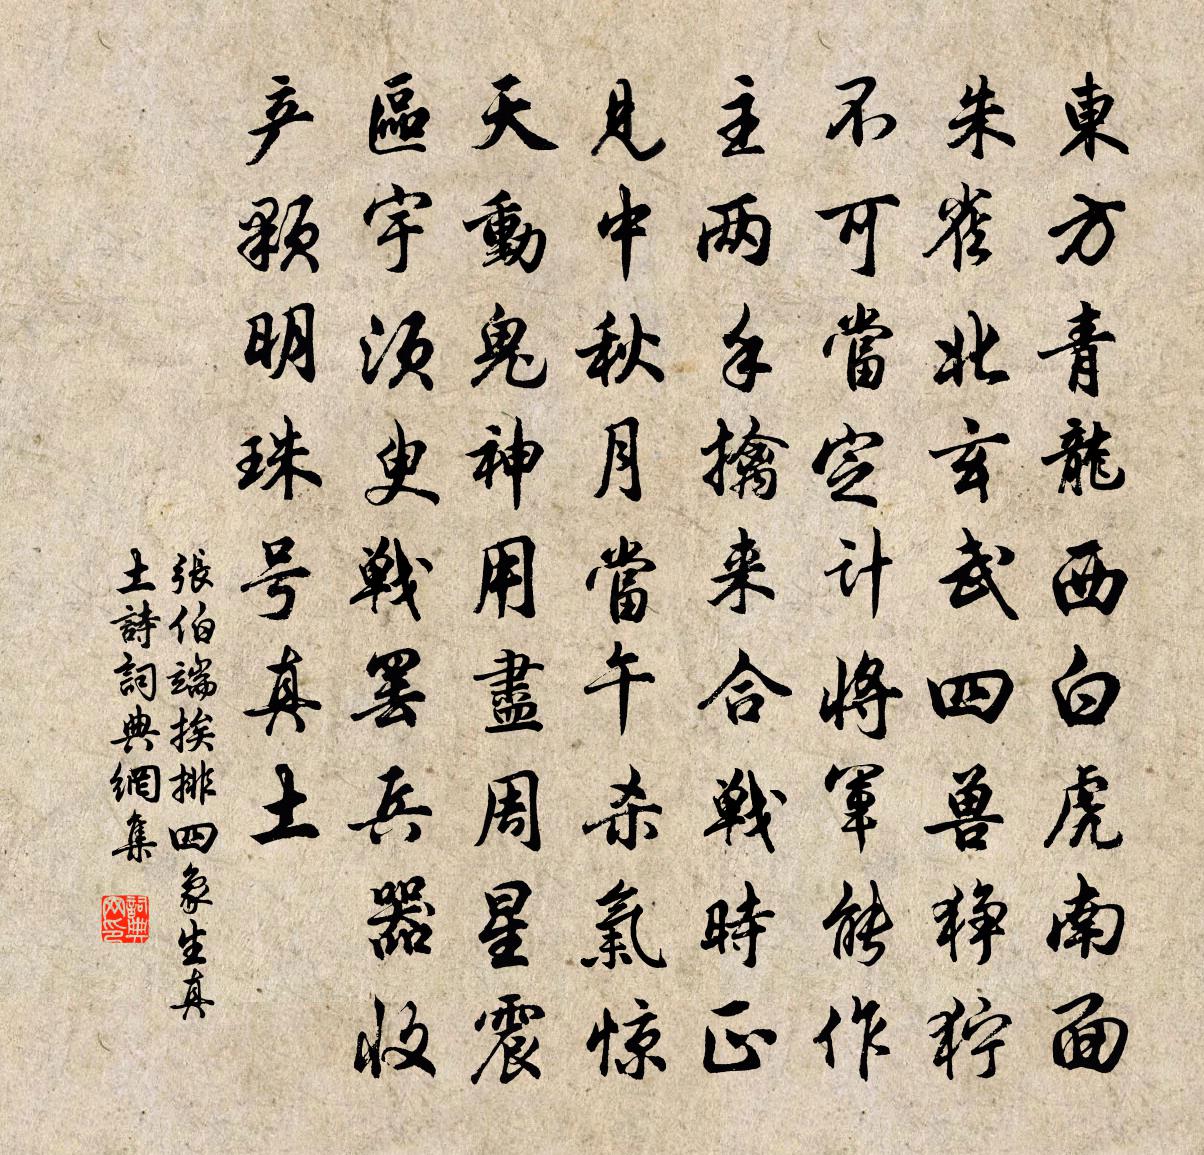 東方青龍西白虎南面
朱雀北玄武四兽狰狞
不可當定计将軍能作
主两手擒来合戦時正
見中秋月當午杀氣惊
天動鬼神用盡周星震
區宇须臾戦罢兵器收
产颗明珠号真土
張伯端挨排四象生真
土詩詞典網集
詞典
网印